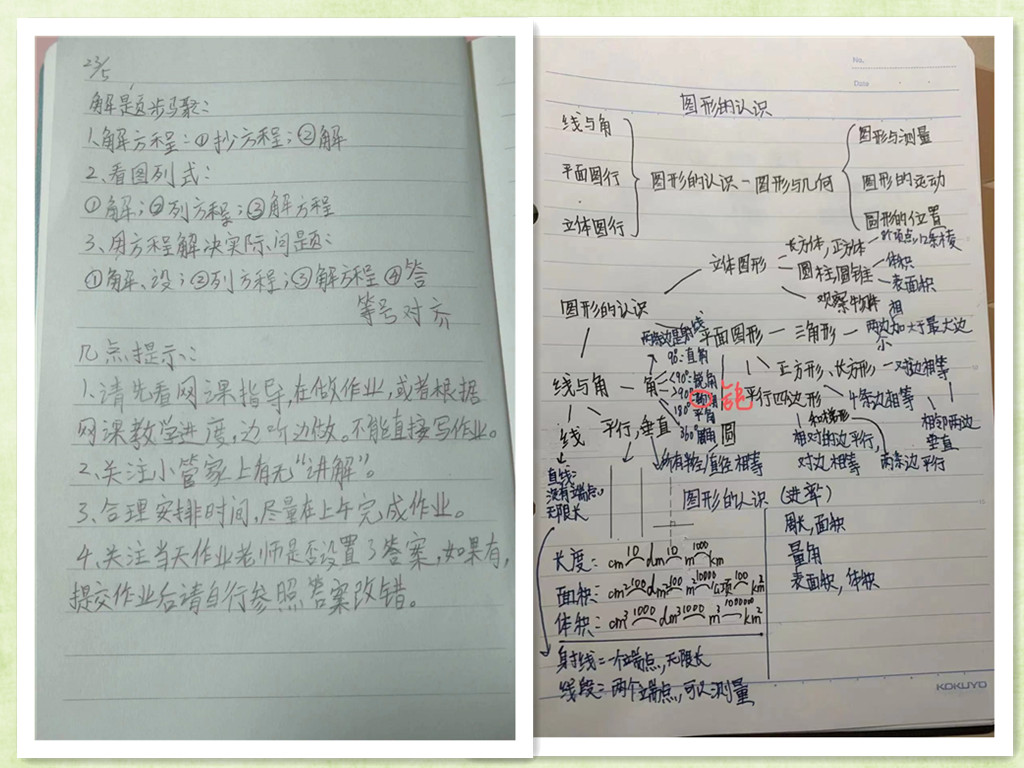 23/5
解题步骤:
1.解方程:①抄方程;②解
2、看图列式:
①解;②列方程;③解方程
3、用方程解决实际问题:
①解、设;②列方程;③解方程④答
等号对齐
几点提示:
1.请先看网课指导,在做作业,或者根据
网课教学进度,边听边做。不能直接写作业。
2.关注小管家上有无“讲解”。
3、合理安排时间,尽量在上午完成作业。
4.关注当天作业老师是否设置了答案,如果有,
提交作业后请自行参照答案改错。
No.
Date
图形的认识
线与角
平面图行
立体图行
图形的认识-图形与几何
图形与测量
图形的运动
图形的位置
立体图形
长方体,正方体-8个顶点,12条棱
圆柱,圆锥
体积
表面积
观察物体
图形的认识
平面图形-三角形-两边相加大于最大边
两条边是射线
线与角-角
90°直角
<90°锐角
>90°
180°平角
360°周角
圆
正方形、长方形-对边相等
平行四边形
4条边相等
和梯形
相对的边平行,
对边相等
两条边平行
相邻两边
垂直
线
平行,垂直
所有半径/直径相等
直线:
没有端点,
无限长
图形的认识(进率)
长度:cm 10 dm 10 m 1000 km
面积:cm² 100 dm² 100 m² 10000 公顷 100 km²
体积:cm³ 1000 dm³ 1000 m³ 1000000 km²
周长,面积
量角
表面积,体积
射线=一个端点,无限长
线段=两个端点,可以测量
KOKUYO